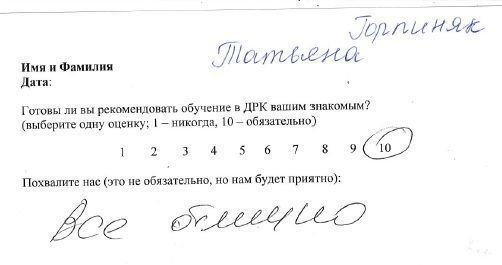 Горпиняк
Имя и Фамилия Татьяна
Дата:
Готовы ли вы рекомендовать обучение в ДРК вашим знакомым?
(выберите одну оценку; 1 – никогда, 10 – обязательно)
1 2 3 4 5 6 7 8 9 10
Похвалите нас (это не обязательно, но нам будет приятно):
Все отлично